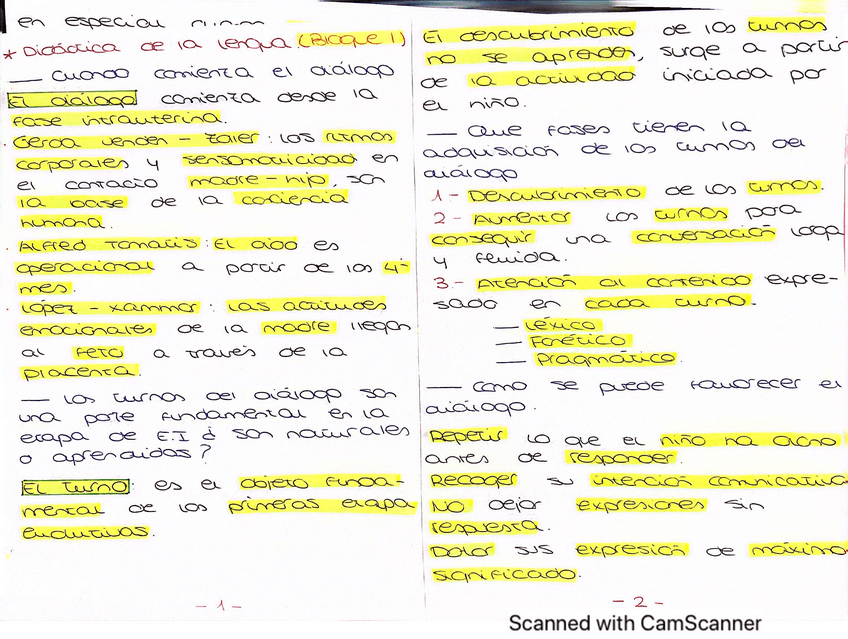 en especial
* Didáctica de la lengua (Bloque 1)
— Cuando comienza el diálogo
El diálogo comienza desde la
fase intrauterina.
· Gerda Venden - Zaler: Los ritmos
corporales y sensomotricidad en
el contacto madre-hijo, son
la base de la conciencia
humana.
· Alfred Tomatis: El oido es
operacional a partir de los 4-
mes.
· López - Xammar: Las actitudes
emocionales de la madre llegan
al feto a través de la
placenta.
— Los turnos del diálogo son
una parte fundamental en la
etapa de E.I ¿ son naturales
o aprendidos?
El turno: es el objeto funda-
mental de las primeras etapa
evolutivas.
- 1 -
El descubrimiento de los turnos
no se aprenden, surge a partir
de la actividad iniciada por
el niño.
— Que fases tienen la
adquisición de los turnos del
diálogo
1 - Descubrimiento de los turnos.
2 - Aumentar los turnos para
conseguir una conversación larga
y fluida.
3.- Atención al contenido expre-
sado en cada turno.
— Léxico
— Fonético
— Pragmático.
— Como se puede favorecer el
diálogo.
Repetir lo que el niño ha dicho
antes de responder.
Recoger su intención comunicativa
No dejar expresiones sin
respuesta.
Dotar sus expresión de máximo
significado.
- 2 -
Scanned with CamScanner